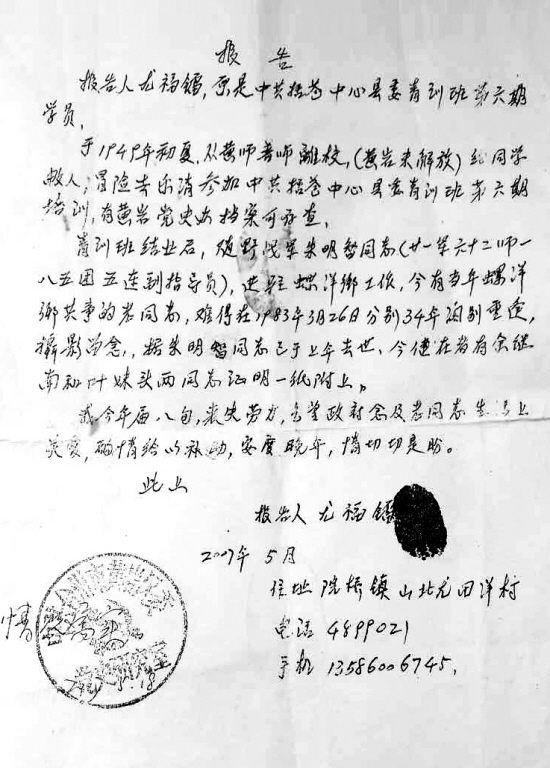 报告
报告人尤福镭,原是中共括苍中心县委青训班第六期
学员。
于1949年初夏,从黄师善师離校,(黄岩未解放)经同学
救人,冒险去乐清参加中共括苍中心县委青训班第六期
培训,有黄岩党史办档案可存查。
青训班结业后,随野战军朱明智同志(廿一军六十二师一
八五团五连副指导员),进驻螺洋鄉工作,今有当年螺洋
鄉共事的老同志,难得在1983年3月26日分别34年阔别重逢,
攝影留念,据朱明智同志已于上年去世,今健在者有余继
南和叶妹头两同志证明一纸附上。
我今年届八旬,丧失劳力,希望政府念及老同志生活上
关爱,酌情给以补助,安度晚年,情切切是盼。
此上
报告人 尤福镭
2007年5月
住址 院桥镇山北尤田洋村
电话 4899021
手机 13586006745.
情